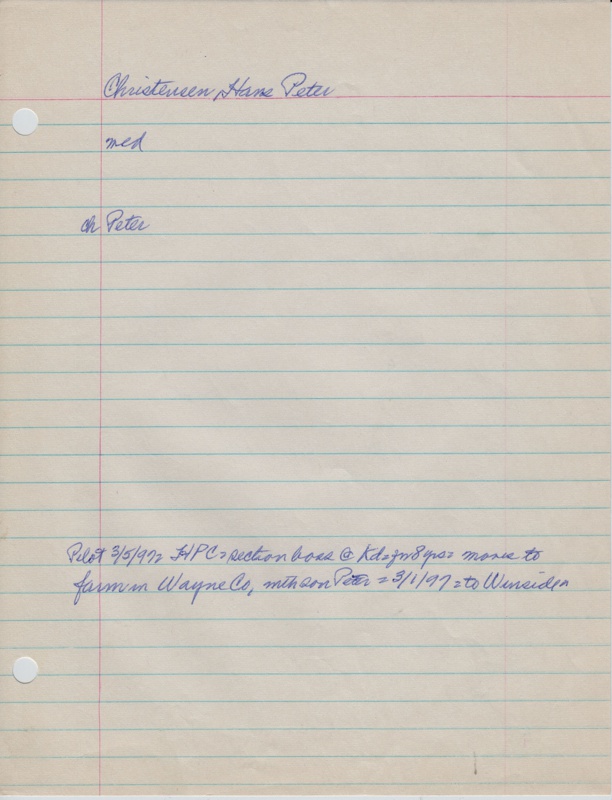 Christensen, Hans Peter
med
ch Peter
Pilot 3/5/97= HPC= section boss @ Kd= 8 yrs= moves to
farm in Wayne Co, son Peter = 3/1/97 = to Winside